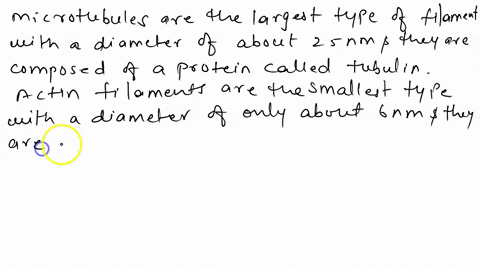 microtubules are the largest type of filament
with a diameter of about 25nm & they are
composed of a protein called tubulin.
Actin filaments are the smallest type
with a diameter of only about 6nm & they
are